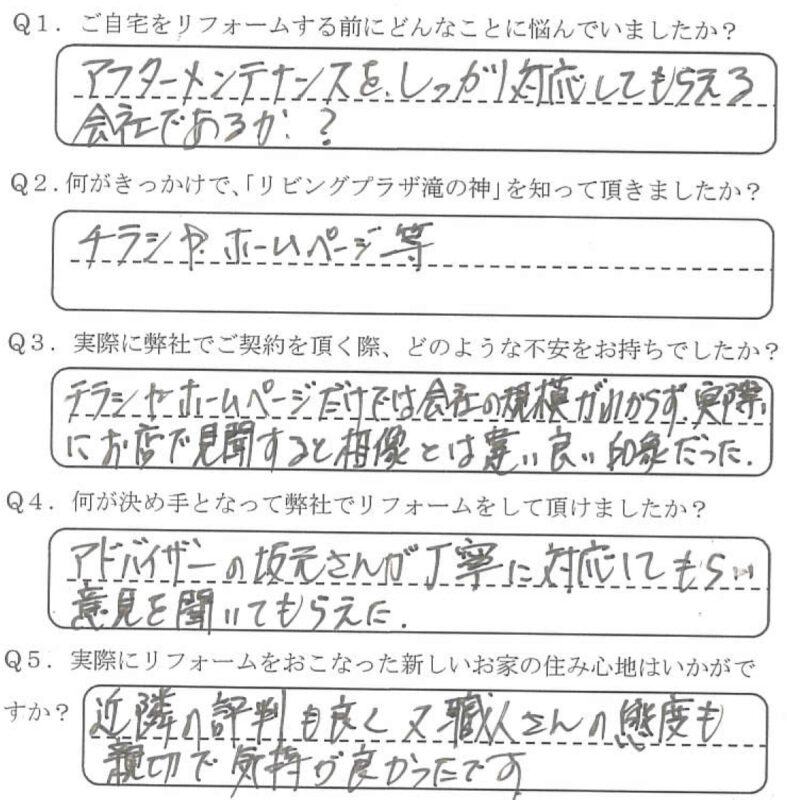 Q1．ご自宅をリフォームする前にどんなことに悩んでいましたか？
アフターメンテナンスを、しっかり対応してもらえる
会社であるか、？
Q2．何がきっかけで、「リビングプラザ滝の神」を知って頂きましたか？
チラシや ホームページ等
Q3．実際に弊社でご契約を頂く際、どのような不安をお持ちでしたか？
チラシやホームページだけでは会社の規模がわからず、実際
にお店で見聞すると相像とは違い良い印象だった.
Q4．何が決め手となって弊社でリフォームをして頂けましたか？
アドバイザーの坂元さんが丁寧に対応してもらい
意見を聞いてもらえた.
Q5．実際にリフォームをおこなった新しいお家の住み心地はいかがで
すか？
近隣の評判も良く又職人さんの態度も
親切で気持が良かったです